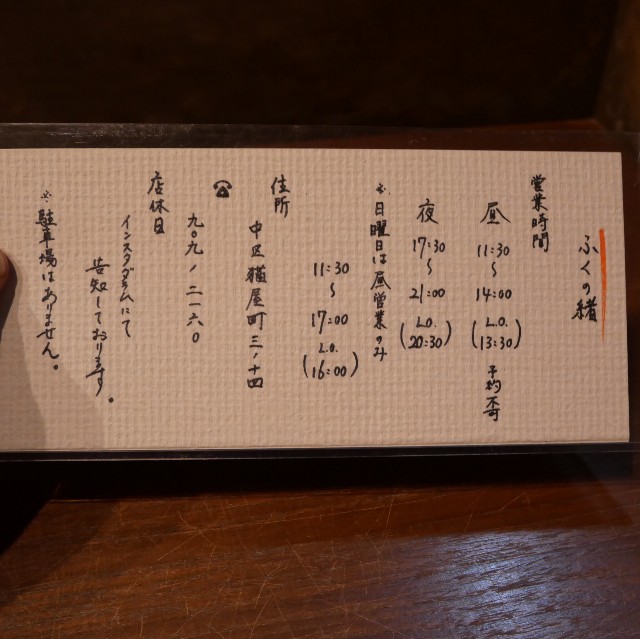 ふくの緒
営業時間
昼 11:30〜14:00 (L.O. 13:30) 予約不可
夜 17:30〜21:00 (L.O. 20:30)
※日曜日は昼営業のみ
11:30〜17:00 (L.O. 16:00)
住所 中区猫屋町三ノ十四
☎ 九〇九ノ二一六〇
店休日
インスタグラムにて
告知しております。
※駐車場はありません。